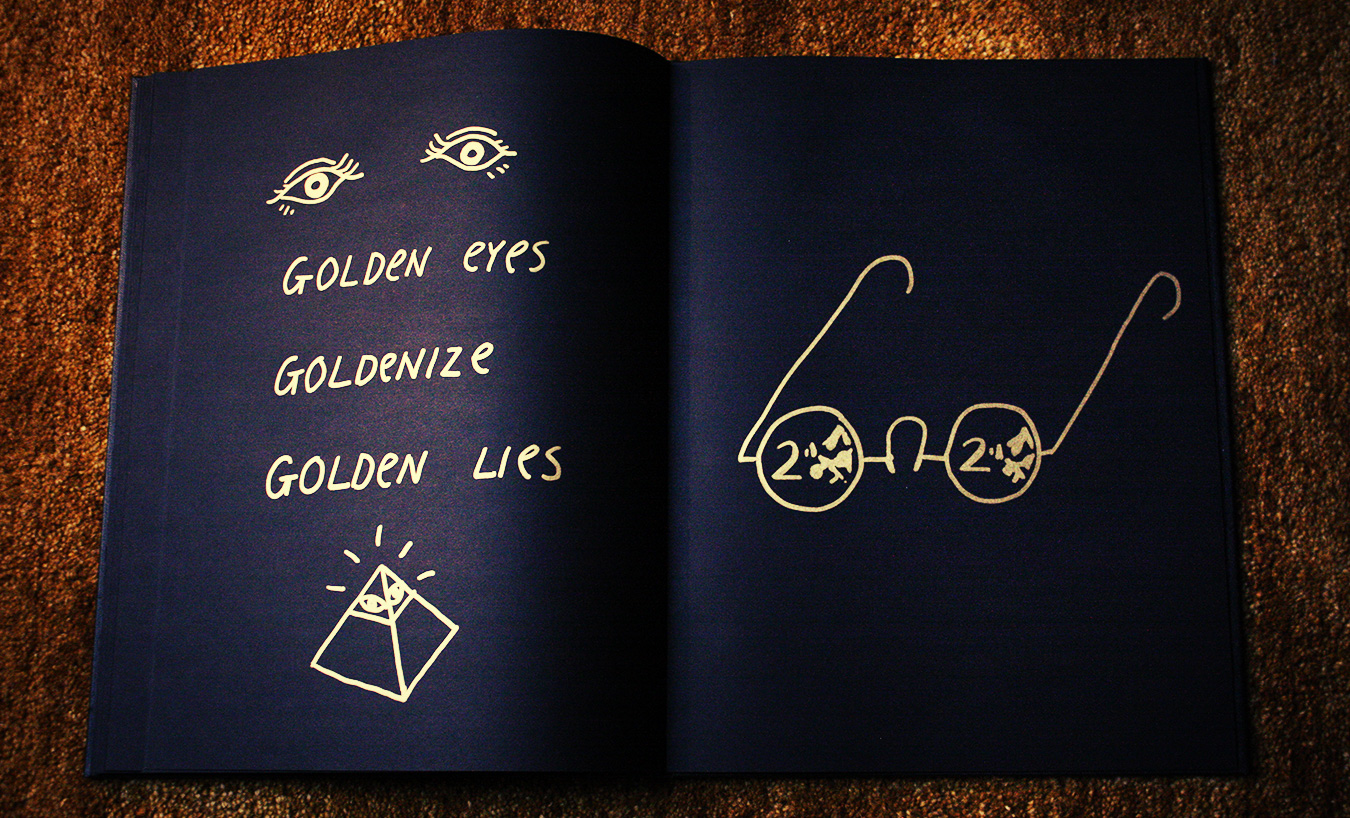 GOLDEN eyes
GOLDENIZE
GOLDEN LIES
2 2